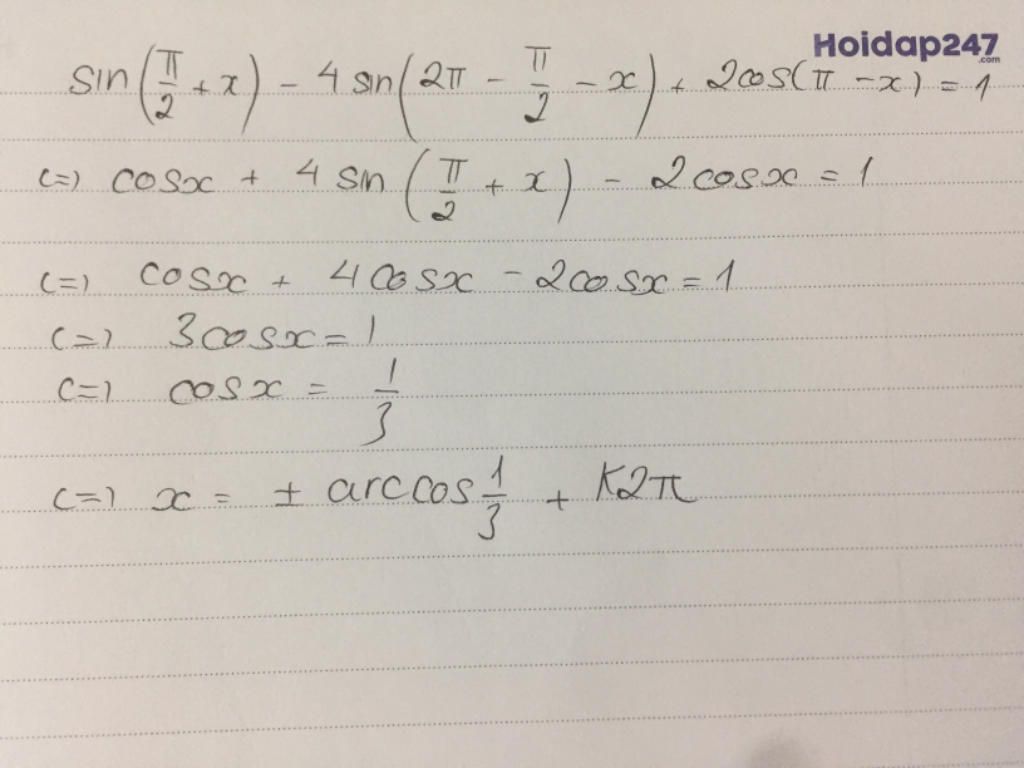 Hoidap247
.com
sin(π/2 + x) - 4 sin(2π - π/2 - x) + 2cos(π - x) = 1
(=) cosx + 4 sin(π/2 + x) - 2cosx = 1
(=) cosx + 4cosx - 2cosx = 1
(=) 3cosx = 1
(=) cosx = 1/3
(=) x = ± arccos 1/3 + K2π